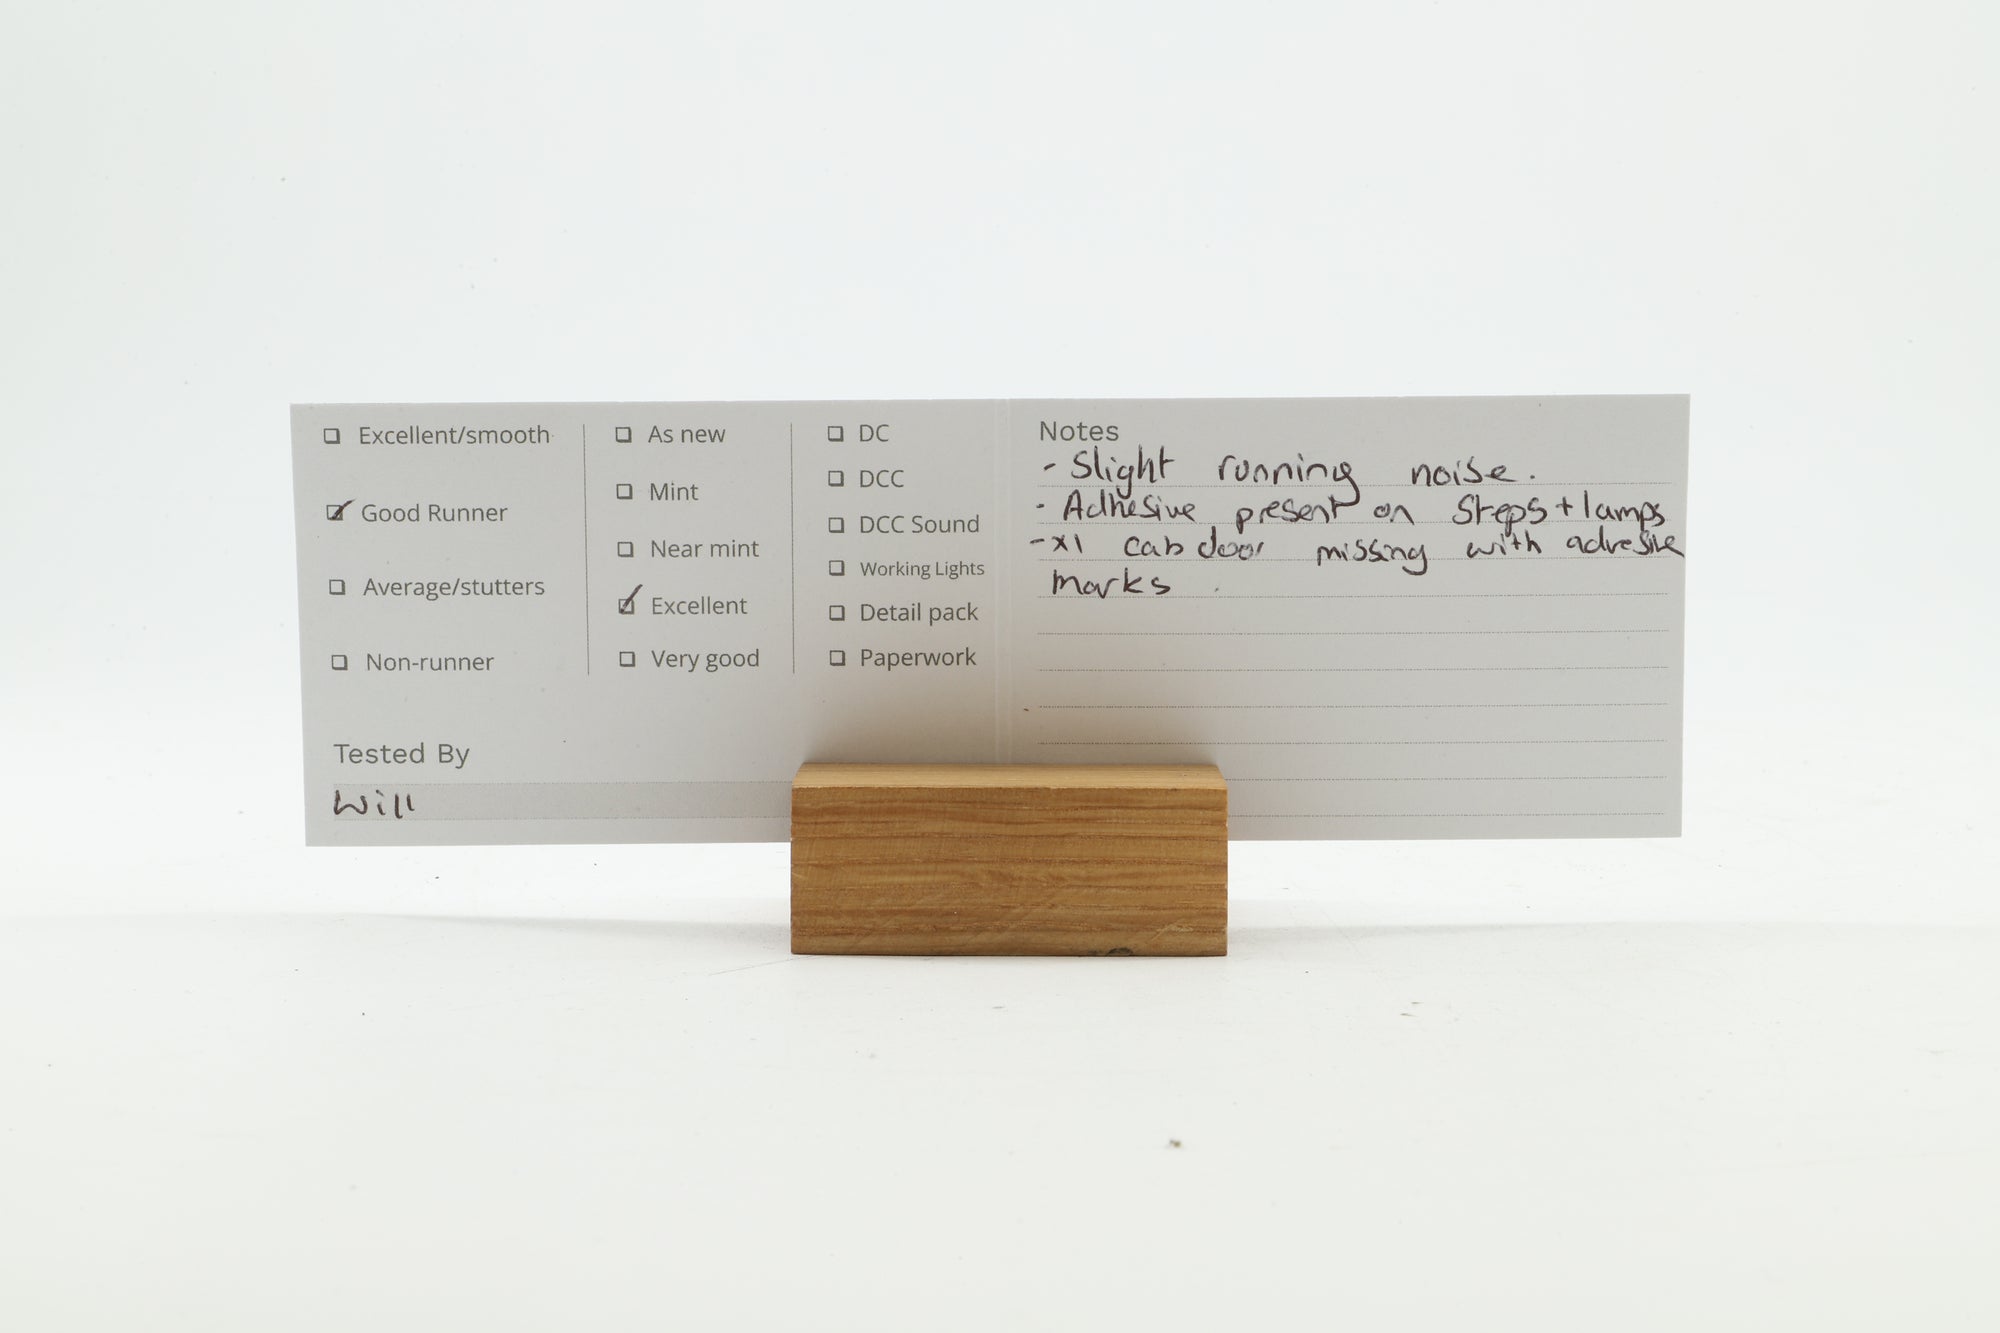 ☐ Excellent/smooth
☑ Good Runner
☐ Average/stutters
☐ Non-runner
☐ As new
☐ Mint
☐ Near mint
☑ Excellent
☐ Very good
☐ DC
☐ DCC
☐ DCC Sound
☐ Working Lights
☐ Detail pack
☐ Paperwork
Tested By
Will
Notes
- Slight running noise.
- Adhesive present on Steps + lamps
- x1 cab door missing with adresive
marks